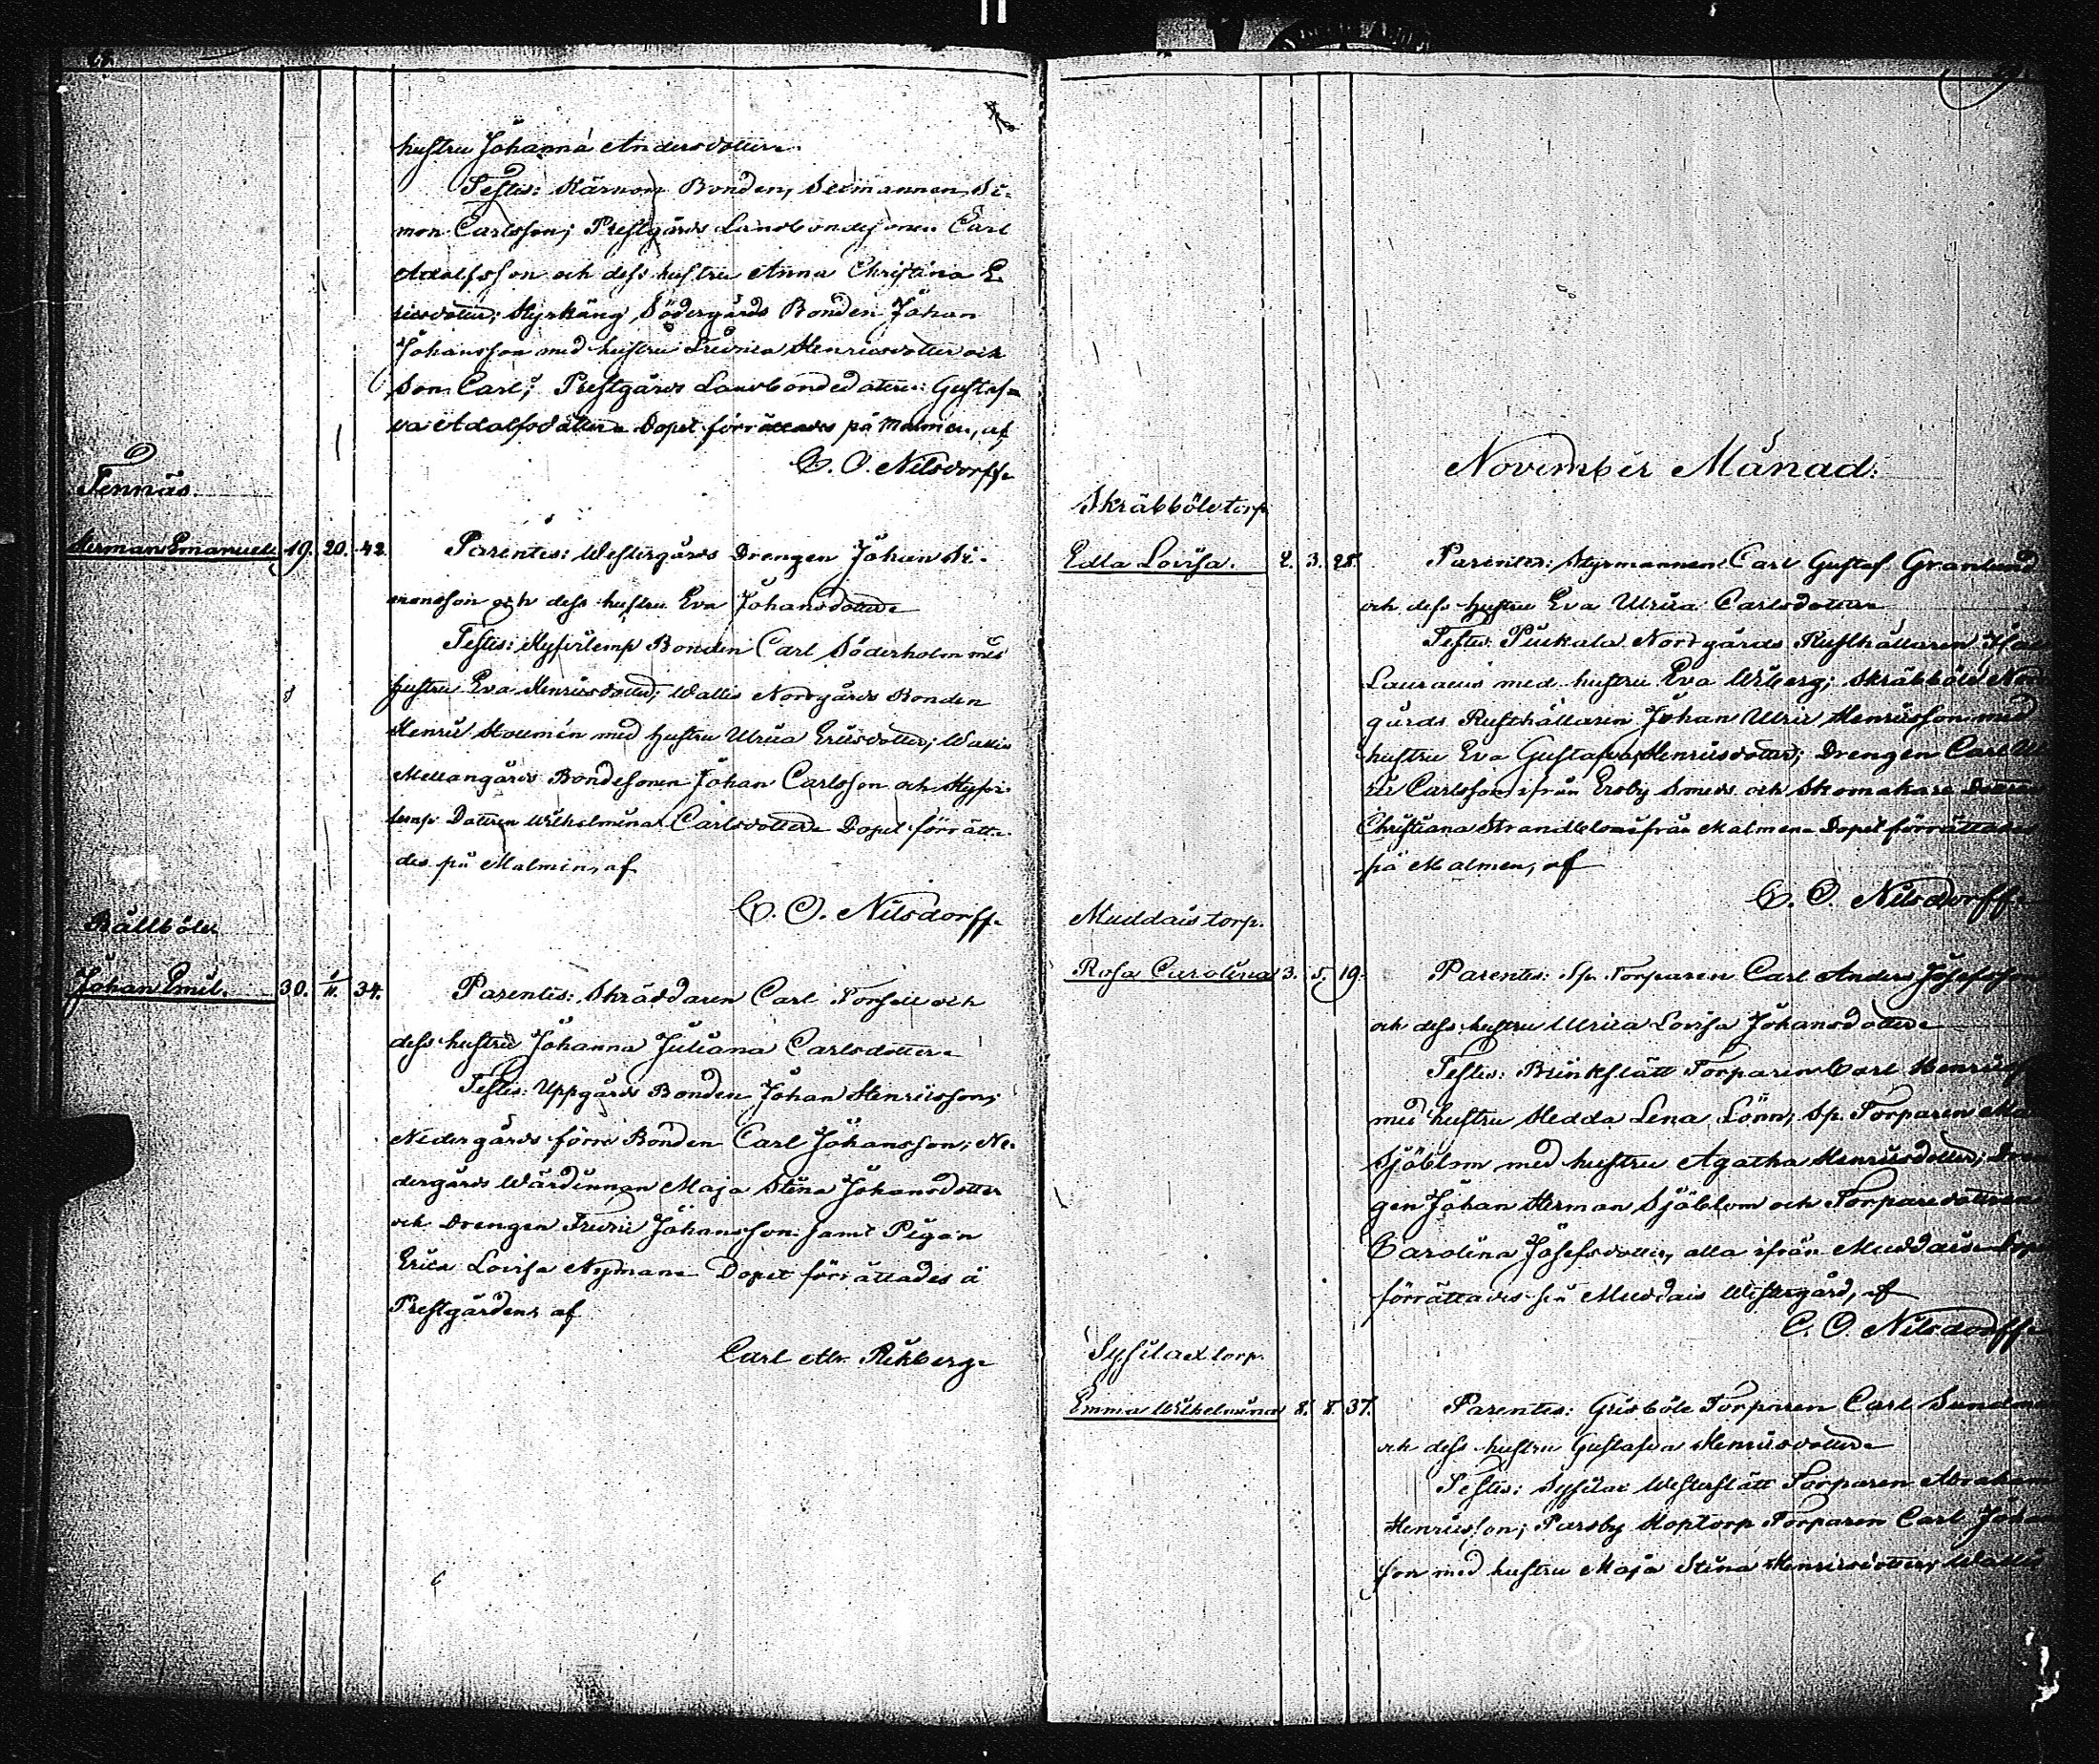 hustru Johanna Andersdotter.
Testis: Kärmor Bonden, Sexmannen Si-
mon Carlsson; Prestgårds Landbondesonen Carl
Adolfsson och dess hustru Anna Christina E-
ricsdotter; Kyrkäng Södergårds Bonden Johan
Johansson med hustru Fredrica Henricsdotter och
Son Carl; Prestgårds Landbondedottern Gustaf-
va Adolfsdotter. Dopet förrättades på Malmen, af
C. O. Nilsdorff.
Tennäs.
Herman Emanuel. 19. 20. 42.
Parentes: Westergårds Drengen Johan Si-
monsson och dess hustru Eva Johansdotter.
Testis: Bonden Carl Söderholm med
hustru Eva Henricsdotter; Wallis Norrgårds Bonden
Henric med hustru Ulrica Ericsdotter; Wallis
Mellangårds Bondesonen Johan Carlsson och
Dottren Wilhelmina Carlsdotter. Dopet förrätta-
des på Malmen, af
C. O. Nilsdorff.
Rållböle.
Johan Emil. 30. 1/11. 34.
Parentes: Skräddaren Carl Forsell och
dess hustru Johanna Juliana Carlsdotter.
Testis: Uppgårds Bonden Johan Henricsson;
Nedergårds förre Bonden Carl Johansson; Ne-
dergårds Wärdinnan Maja Stina Johansdotter
och Drengen Fredric Johansson samt Pigan
Erica Lovisa Nyman. Dopet förrättades å
Prestgården, af
Carl Alr. Rikberg.
November Månad.
Skräbböle torp
Edla Lovisa. 2. 3. 28.
Parentes: Styrmannen Carl Gustaf Granlund
och dess hustru Eva Ulrica Carlsdotter.
Testis: Piukala Norrgårds Rusthållaren
Lauraeus med hustru Eva Wiberg; Skräbböle Nor
gårds Rusthållaren Johan Ulric Henricsson med
hustru Eva Gustafva Henricsdotter; Drengen Carl Ul
ric Carlsson ifrån Ersby Smeds och Skomakare
Christiana Strandblom ifrån Malmen. Dopet förrättades
på Malmen, af
C. O. Nilsdorff.
Muddais torp.
Rosa Carolina 3. 5. 19.
Parentes: Sp. Torparen Carl Anders Josefsson
och dess hustru Ulrica Lovisa Johansdotter.
Testis: Brinkslätt Torparen Carl Henricss
med hustru Hedda Lena Lönn; Sp. Torparen
Sjöblom med hustru Agatha Henricsdotter; Dren
gen Johan Herman Sjöblom och Torparedottren
Carolina Josefsdotter, alla ifrån Muddais. Dop
förrättades på Muddais Westergård, af
C. O. Nilsdorff.
Sysilax torp.
Emma Wilhelmina 8. 8. 37.
Parentes: Grisböle Torparen Carl
och dess hustru Gustafva Henricsdotter.
Testis: Sysilax Westerslätt Torparen Abraham
Henricsson; Parsby Koptorp Torparen Carl Johan
son med hustru Maja Stina Henricsdotter; Wallis